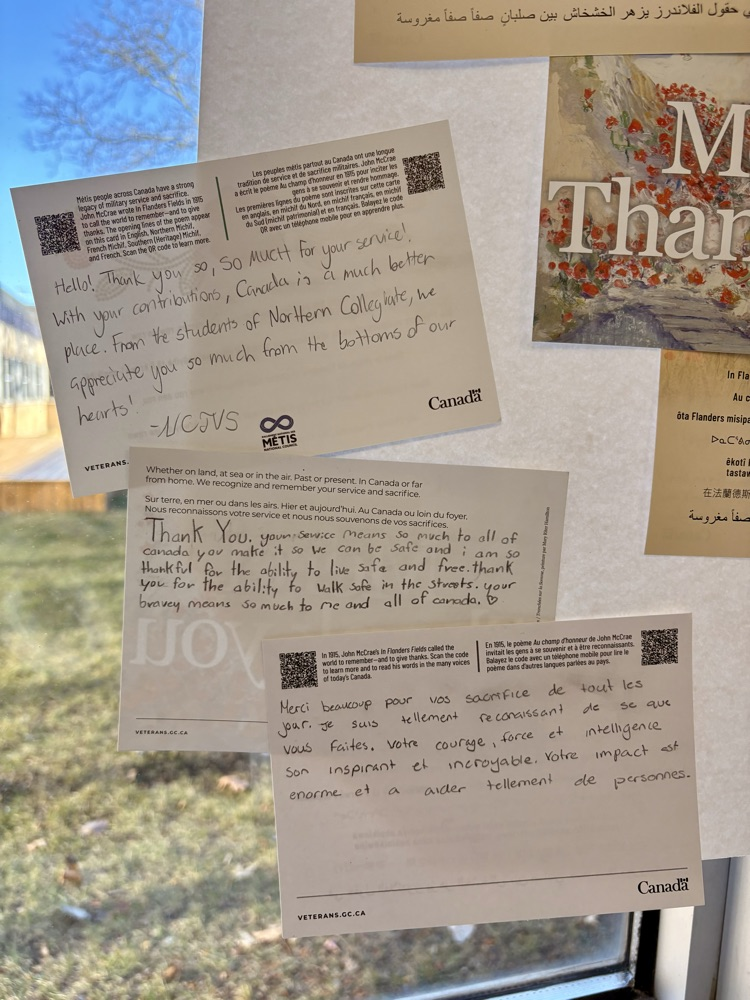 ي حقول الفلاندرز يزهر الخشخاش بين صلبانٍ صفاً صفاً مغروسة
M
Than
In Fla
Au c
ôta Flanders misipa
ᐅᓇᑕ
êkotî
tastaw
在法蘭德斯
صفاً مغروسة
Métis people across Canada have a strong
legacy of military service and sacrifice.
John McCrae wrote In Flanders Fields in 1915
to call the world to remember—and to give
thanks. The opening lines of the poem appear
on this card in English, Northern Michif,
French Michif, Southern (Heritage) Michif,
and French. Scan the QR code to learn more.
Les peuples métis partout au Canada ont une longue
tradition de service et de sacrifice militaires. John McCrae
a écrit le poème Au champ d'honneur en 1915 pour inciter les
gens à se souvenir et rendre hommage.
Les premières lignes du poème sont inscrites sur cette carte
en anglais, en michif du Nord, en michif français, en michif
du Sud (michif patrimonial) et en français. Balayez le code
QR avec un téléphone mobile pour en apprendre plus.
Hello! Thank you so, so much for your service!
With your contributions, Canada is a much better
place. From the students of Northern Collegiate, we
appreciate you so much from the bottoms of our
hearts!
-NCIVS
MÉTIS
NATIONAL COUNCIL
Canada
VETERANS.
Whether on land, at sea or in the air. Past or present. In Canada or far
from home. We recognize and remember your service and sacrifice.
Sur terre, en mer ou dans les airs. Hier et aujourd'hui. Au Canada ou loin du foyer.
Nous reconnaissons votre service et nous nous souvenons de vos sacrifices.
Thank You. your service means so much to all of
canada you make it so we can be safe and i am so
thankful for the ability to live safe and free. thank
you for the ability to walk safe in the streets. your
bravey means so much to me and all of canada. ♡
you
VETERANS.GC.CA
In 1915, John McCrae's In Flanders Fields called the
world to remember—and to give thanks. Scan the code
to learn more and to read his words in the many voices
of today's Canada.
En 1915, le poème Au champ d'honneur de John McCrae
invitait les gens à se souvenir et à être reconnaissants.
Balayez le code avec un téléphone mobile pour lire le
poème dans d'autres langues parlées au pays.
Merci beaucoup pour vos sacrifice de tout les
jour. Je suis tellement reconaissant de se que
vous faites. Votre courage, force et intelligence
son inspirant et incroyable. Votre impact est
enorme et a aider tellement de personnes.
Canada
VETERANS.GC.CA